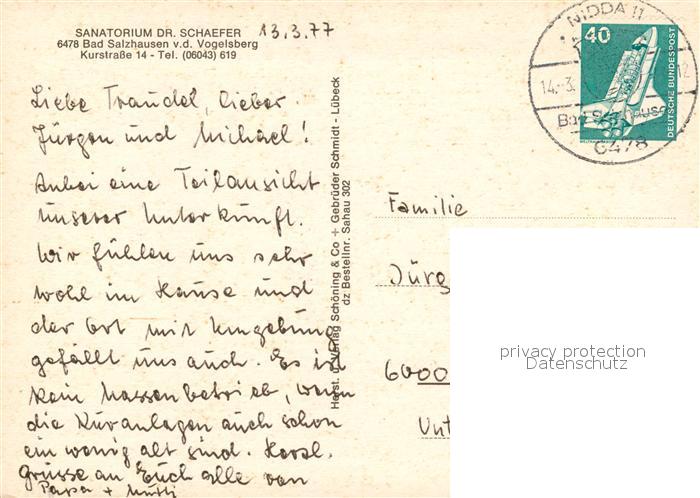 SANATORIUM DR. SCHAEFER
6478 Bad Salzhausen v.d. Vogelsberg
Kurstraße 14 - Tel. (06043) 619
13.3.77
Liebe Traudel, lieber
Jürgen und Michael!
Anbei eine Teilansicht
unserer Unterkunft.
Wir fühlen uns sehr
wohl im Hause und
der Ort mit Umgebung
gefällt uns auch. Es ist
kein Massenbetrieb, wenn
die Kuranlagen auch schon
ein wenig alt sind. Herzl.
Grüsse an Euch alle von
Papa + Mutti
Horst. Verlag Schöning & Co + Gebrüder Schmidt - Lübeck
dz Bestellnr. Sahau 302
NIDDA 11
14.-3.
12
Bad Salzhausen
6478
40
DEUTSCHE BUNDESPOST
Familie
Jürg
6000
Unt
privacy protection
Datenschutz